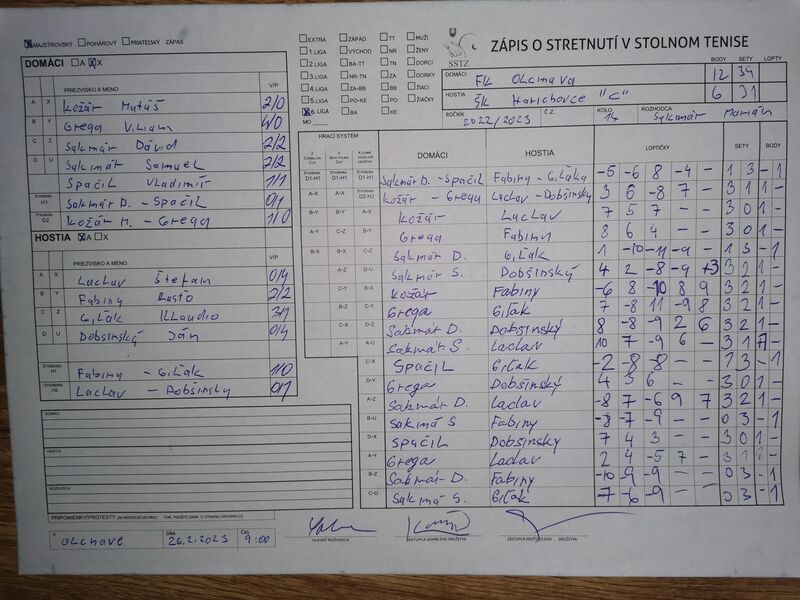 MAJSTROVSKÝ POHÁROVÝ PRIATEĽSKÝ ZÁPAS
EXTRA ZÁPAD TT MUŽI
1.LIGA VÝCHOD NR ŽENY
2.LIGA BA-TT TN DORCI
3.LIGA NR-TN ZA DORKY
4.LIGA ZA-BB BB ŽIACI
5.LIGA PO-KE PO ŽIAČKY
6.LIGA BA KE
MO
SSTZ
ZÁPIS O STRETNUTÍ V STOLNOM TENISE
BODY SETY LOPTY
DOMÁCI FK Olcnava 12 39
HOSTIA ŠK Harichovce "C" 6 31
ROČNÍK 2022/2023 Č.Z. KOLO 14 ROZHODCA Sakmár Marián
DOMÁCI A X
PRIEZVISKO A MENO V/P
A X Kožár Matúš 2/0
B Y Grega Viliam 4/0
C Z Sakmár Dávid 2/2
D U Sakmár Samuel 2/2
Spačil Vladimír 1/1
ŠTVORHRA D1 Sakmár D. - Spačil 0/1
ŠTVORHRA D2 Kožár M. - Grega 1/0
HOSTIA A X
PRIEZVISKO A MENO V/P
A X Laclav Štefan 0/4
B Y Fabiny Rasťo 2/2
C Z Giľak Klaudio 3/1
D U Dobšinský Ján 0/4
ŠTVORHRA H1 Fabiny - Giľak 1/0
ŠTVORHRA H2 Laclav - Dobšinsky 0/1
DOMÁCI
HOSTIA
ROZHODCA
PRIPOMIENKY/PROTESTY
V Olcnave DŇA 26.2.2023 ČAS 9:00
HLAVNÝ ROZHODCA ZÁSTUPCA DOMÁCEHO DRUŽSTVA ZÁSTUPCA HOSŤUJÚCEHO DRUŽSTVA
HRACÍ SYSTÉM DOMÁCI HOSTIA LOPTIČKY SETY BODY
D1-H1 D1-H1 D1-H1 Sakmár D. - Spačil Fabiny - Giľak -5 -6 8 -4 - 1 3 - 1
A-X A-X D2-H2 Kožár - Grega Laclav - Dobšinsky 3 6 -8 7 - 3 1 1 -
B-Y B-Y A-X Kožár Laclav 7 5 7 - - 3 0 1 -
A-Y C-Z B-Y Grega Fabiny 8 6 4 - - 3 0 1 -
B-X B-X C-Z Sakmár D. Giľak 1 -10 -11 -9 - 1 3 - 1
A-Z D-U Sakmár S. Dobšinský 4 2 -8 -9 +3 3 2 1 -
C-Y B-X Kožár Fabiny -6 8 -10 8 9 3 2 1 -
B-Z C-Y Grega Giľak 7 -8 11 -9 8 3 2 1 -
C-X D-Z Sakmár D. Dobšinský 8 -8 -9 2 6 3 2 1 -
A-Y A-U Sakmár S. Laclav 10 7 -9 6 - 3 1 1 -
C-X Spačil Giľak -2 -8 -8 - - 1 3 - 1
D-Y Grega Dobšinský 4 3 6 - - 3 0 1 -
A-Z Sakmár D. Laclav -8 7 -6 9 7 3 2 1 -
B-U Sakmár S Fabiny -8 -7 -9 - - 0 3 - 1
D-X Spačil Dobšinský 7 4 3 - - 3 0 1 -
A-Y Grega Laclav 2 4 -5 7 - 3 1 -
B-Z Sakmár D. Fabiny -10 -9 -9 - - 0 3 - 1
C-U Sakmár S. Giľak -7 -6 -9 - - 0 3 - 1